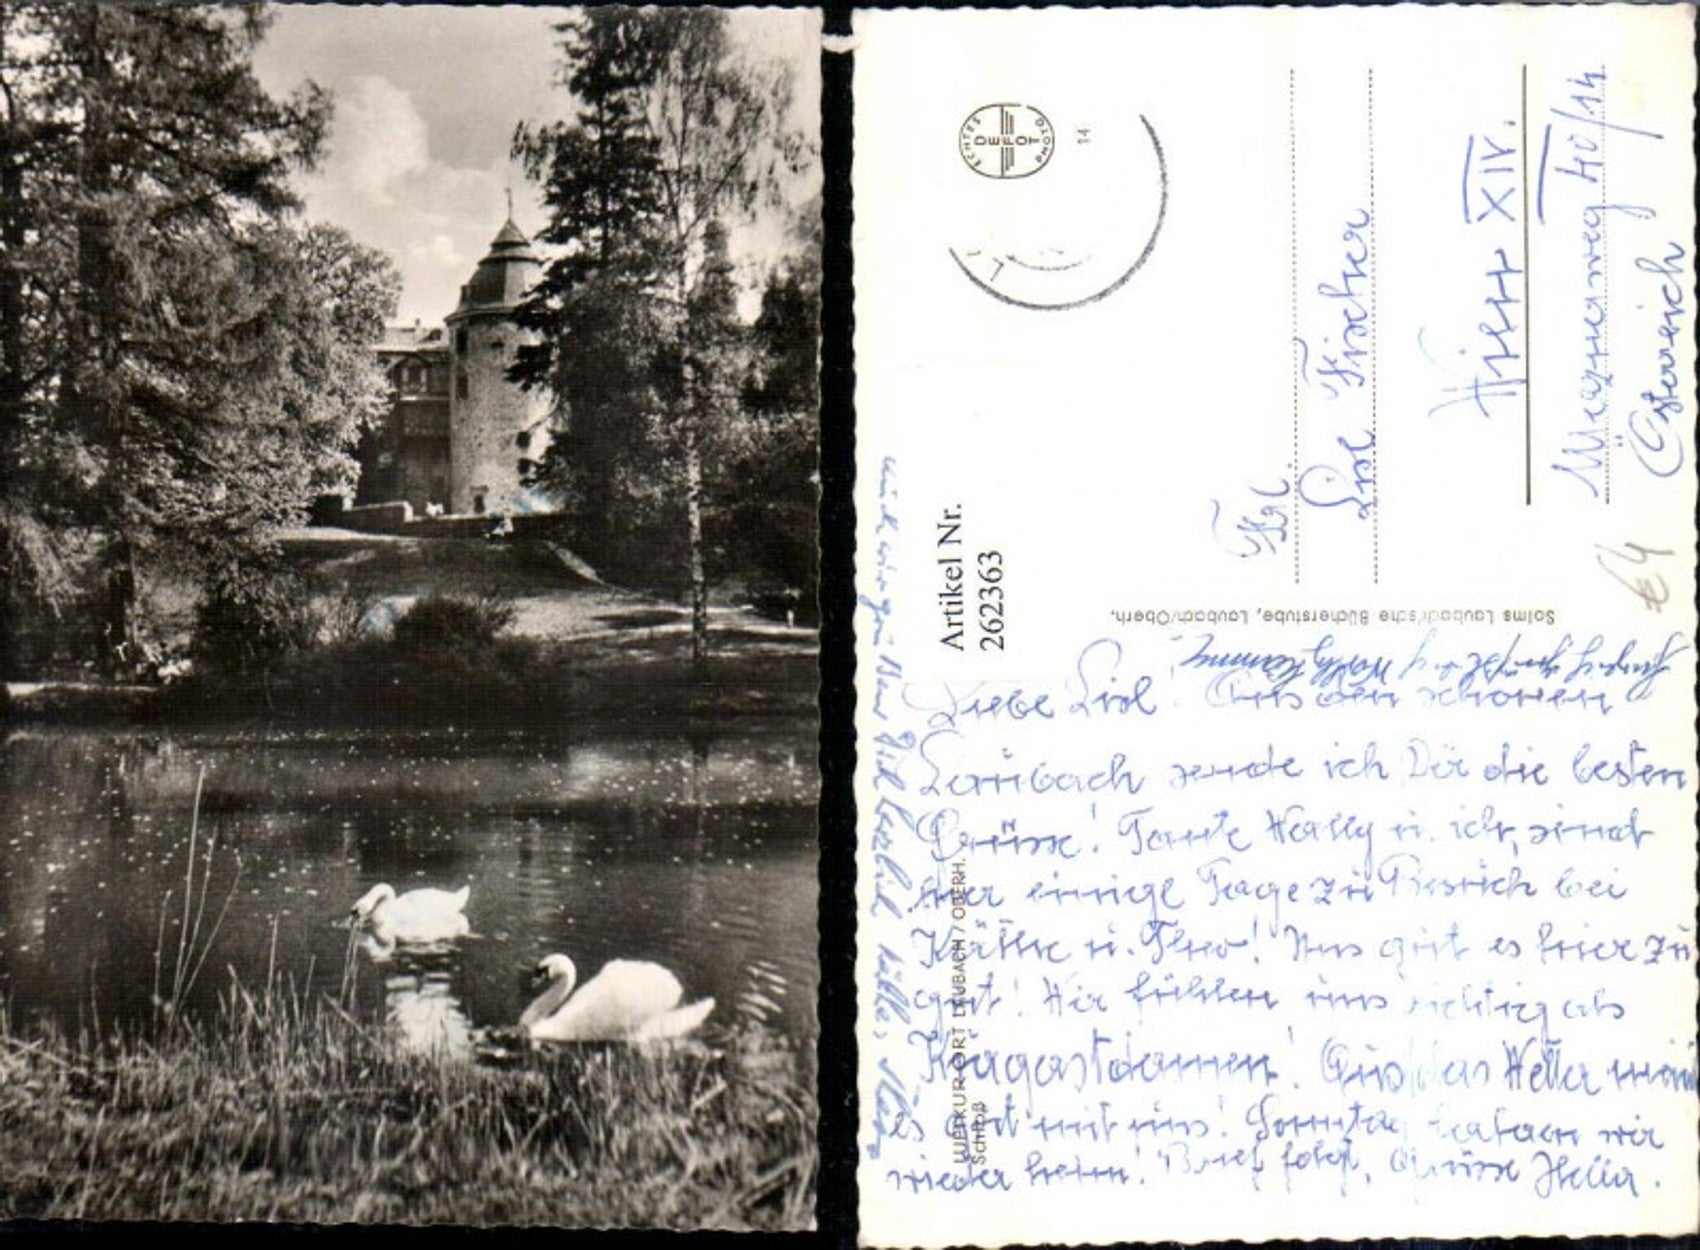 ECHTES
DEFOT
PHOTO
14
Artikel Nr.
262363
Frl.
Lisl Fischer
Wien XIV.
Österreich
€ 4
Solms Laubach'sche Bücherstube, Laubach/Oberh.
LUFTKURORT LAUBACH / OBERH.
Schloß
Liebe Lisl! Aus den schönen
Laubach sende ich Dir die besten
Grüsse! Tante Wally u. ich, sind
hier einige Tage zu Besuch bei
Käthe u. Theo! Uns gut es hier zu
gut! Wir fühlen uns richtig als
Kurgastdamen! Auch das Wetter meint
es gut mit uns! Sonntag fahren wir
wieder heim! Brief folgt, Grüsse Hella.